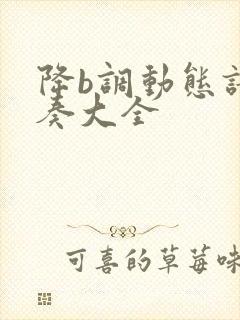 降b調動態
奏大全
可喜的草莓味